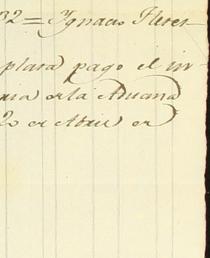 32 = Ygnacio Fleres
plata pago el in-
nia de la Aduana
2 de Abril de